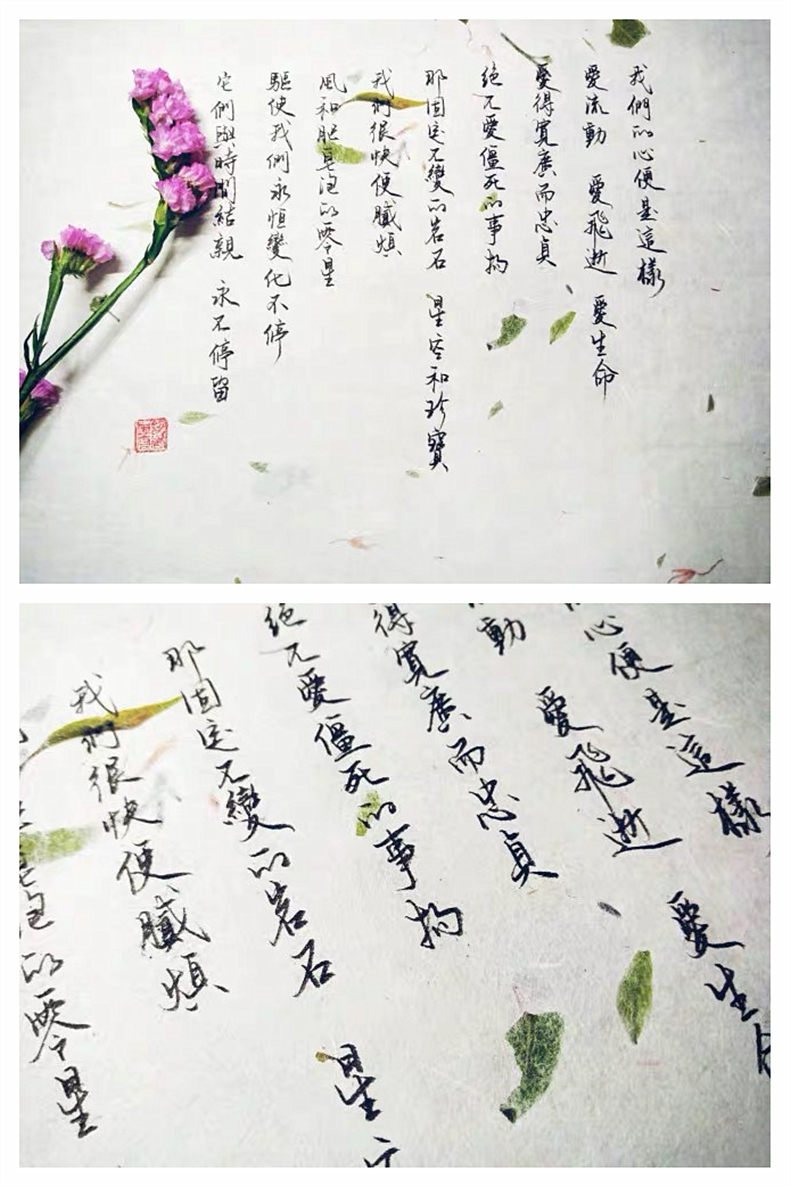 我們的心便是這樣
愛流動 愛飛逝 愛生命
愛得寬廣而忠貞
絕不愛僵死的事物
那固定不變的岩石 星空和珍寶
我們很快便膩煩
風和肥皂泡的零星
驅使我們永恆變化不停
它們與時間結親 永不停留
心便是這樣
動 愛飛逝 愛生命
得寬廣而忠貞
絕不愛僵死的事物
那固定不變的岩石 星
我們很快便膩煩
泡的零星